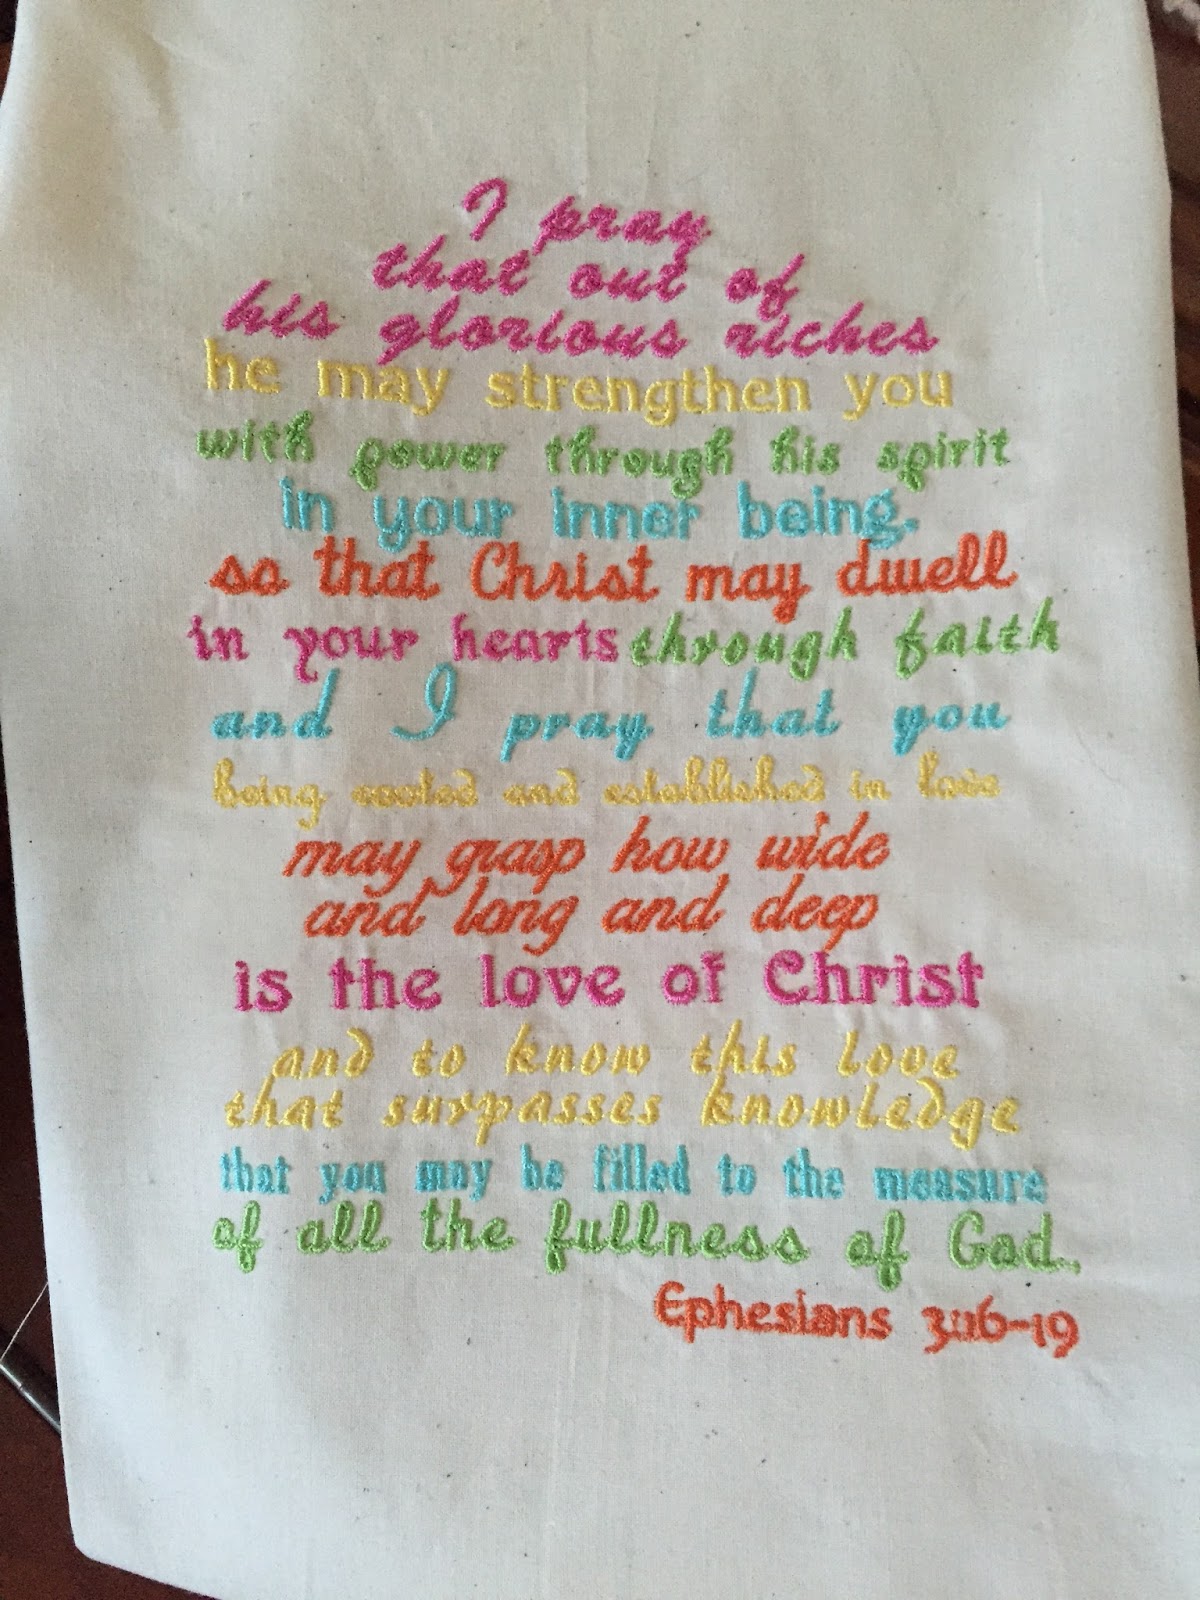 I pray
that out of
his glorious riches
he may strengthen you
with power through his spirit
in your inner being.
so that Christ may dwell
in your hearts through faith
and I pray that you
being rooted and established in love
may grasp how wide
and long and deep
is the love of Christ
and to know this love
that surpasses knowledge
that you may be filled to the measure
of all the fullness of God.
Ephesians 3:16-19